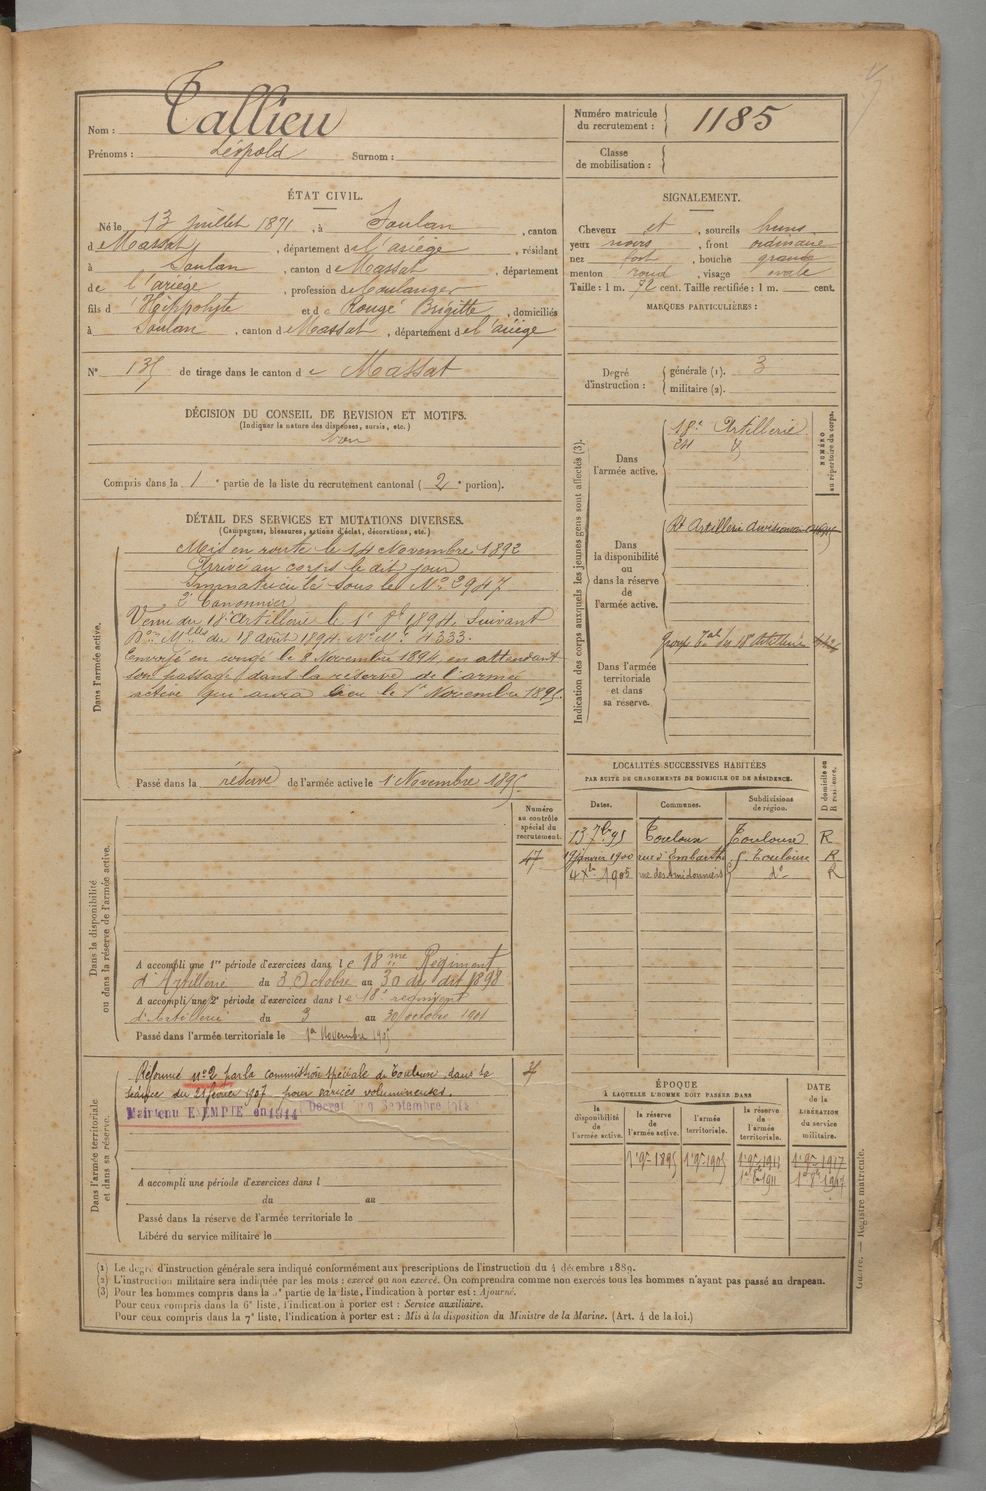 Nom : Tallieu
Prénoms : Léopold Surnom :
Numéro matricule du recrutement : 1185
Classe de mobilisation :
ÉTAT CIVIL.
Né le 13 juillet 1871, à Soulan, canton
d Massat, département de l'ariège, résidant
à Soulan, canton de Massat, département
de l'ariège, profession de Boulanger
fils d' Hippolyte et de Rougé Brigitte, domiciliés
à Soulan, canton de Massat, département de l'ariège
N° 135 de tirage dans le canton de Massat
SIGNALEMENT.
Cheveux et, sourcils bruns
yeux noirs, front ordinaire
nez fort, bouche grande
menton rond, visage ovale
Taille : 1 m. 72 cent. Taille rectifiée : 1 m. cent.
MARQUES PARTICULIÈRES :
Degré d'instruction : générale (1). 3
militaire (2).
DÉCISION DU CONSEIL DE REVISION ET MOTIFS.
(Indiquer la nature des dispenses, sursis, etc.)
Bon
Compris dans la 1e partie de la liste du recrutement cantonal (2e portion).
DÉTAIL DES SERVICES ET MUTATIONS DIVERSES.
(Campagnes, blessures, actions d'éclat, décorations, etc.)
Dans l'armée active.
Mis en route le 14 Novembre 1892
Arrivé au corps le dit jour
Immatriculé sous le No 2947
2e Canonnier
Venu du 18e Artillerie le 1er 8bre 1894. Suivant
Don Mlle du 18 août 1894. No M. 4333.
Envoyé en congé le 8 Novembre 1894, en attendant
son passage dans la réserve de l'armée
active qui aura lieu le 1er Novembre 1895.
Passé dans la réserve de l'armée active le 1 Novembre 1895
Indication des corps auxquels les jeunes gens sont affectés (3).
NUMÉRO au répertoire du corps.
Dans l'armée active.
18e Artillerie
Dans la disponibilité ou dans la réserve de l'armée active.
Rt Artillerie
Dans l'armée territoriale et dans sa réserve.
Groupe Tal du 18e Artillerie
LOCALITÉS SUCCESSIVES HABITÉES
PAR SUITE DE CHANGEMENTS DE DOMICILE OU DE RÉSIDENCE.
D domicile ou R résidence.
Dates. Communes. Subdivisions de région.
13 7bre 95 Toulouse Toulouse R
19 janvier 1900 rue d'Embarthe 5. Toulouse R
4 Xbre 1905 rue des Amidonniers do R
Dans la disponibilité ou dans la réserve de l'armée active.
Numéro au contrôle spécial du recrutement.
47
A accompli une 1re période d'exercices dans le 18me Régiment
d'Artillerie du 3 Octobre au 30 du dit 1898
A accompli une 2e période d'exercices dans le 18e régiment
d'Artillerie du 3 au 30 octobre 1901
Passé dans l'armée territoriale le 1er Novembre 1905
Dans l'armée territoriale et dans sa réserve.
Réformé no 2 par la commission spéciale de Toulouse dans la
séance du 21 février 1907 pour varices volumineuses.
Maintenu EXEMPTÉ en 1914 Décret du 9 Septembre 1914
A accompli une période d'exercices dans l
du au
Passé dans la réserve de l'armée territoriale le
Libéré du service militaire le
ÉPOQUE
À LAQUELLE L'HOMME DOIT PASSER DANS
la disponibilité de l'armée active.
la réserve de l'armée active.
l'armée territoriale.
la réserve de l'armée territoriale.
DATE de la LIBÉRATION du service militaire.
1er 9bre 1895 1er 9bre 1905 1er 9bre 1911 1er 9bre 1917
(1) Le degré d'instruction générale sera indiqué conformément aux prescriptions de l'instruction du 4 décembre 1889.
(2) L'instruction militaire sera indiquée par les mots : exercé ou non exercé. On comprendra comme non exercés tous les hommes n'ayant pas passé au drapeau.
(3) Pour les hommes compris dans la 5e partie de la liste, l'indication à porter est : Ajourné.
Pour ceux compris dans la 6e liste, l'indication à porter est : Service auxiliaire.
Pour ceux compris dans la 7e liste, l'indication à porter est : Mis à la disposition du Ministre de la Marine. (Art. 4 de la loi.)
Guerre. — Registre matricule.